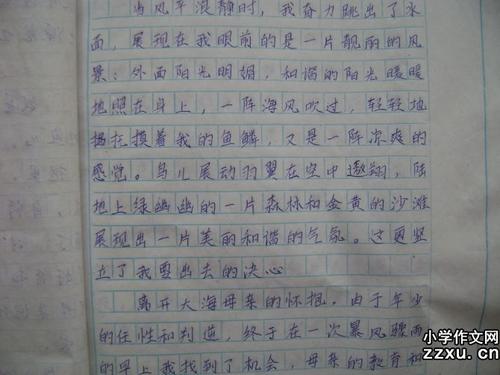 当风平浪静时，我奋力跳出了水
面，展现在我眼前的是一片靓丽的风
景：外面阳光明媚，和谐的阳光暖暖
地照在身上，一阵海风吹过，轻轻地
抚摸着我的鱼鳞，又是一阵凉爽的
感觉。鸟儿展动羽翼在空中遨翔，陆
地上绿幽幽的一片森林和金黄的沙滩
展现出一片美丽和谐的气氛。这更坚
立了我要出去的决心
离开大海母亲的怀抱，由于年少
的任性和判逆，终于在一次暴风骤雨
的早上我找到了机会，母亲的教育和
小学作文网
zzxu.cn